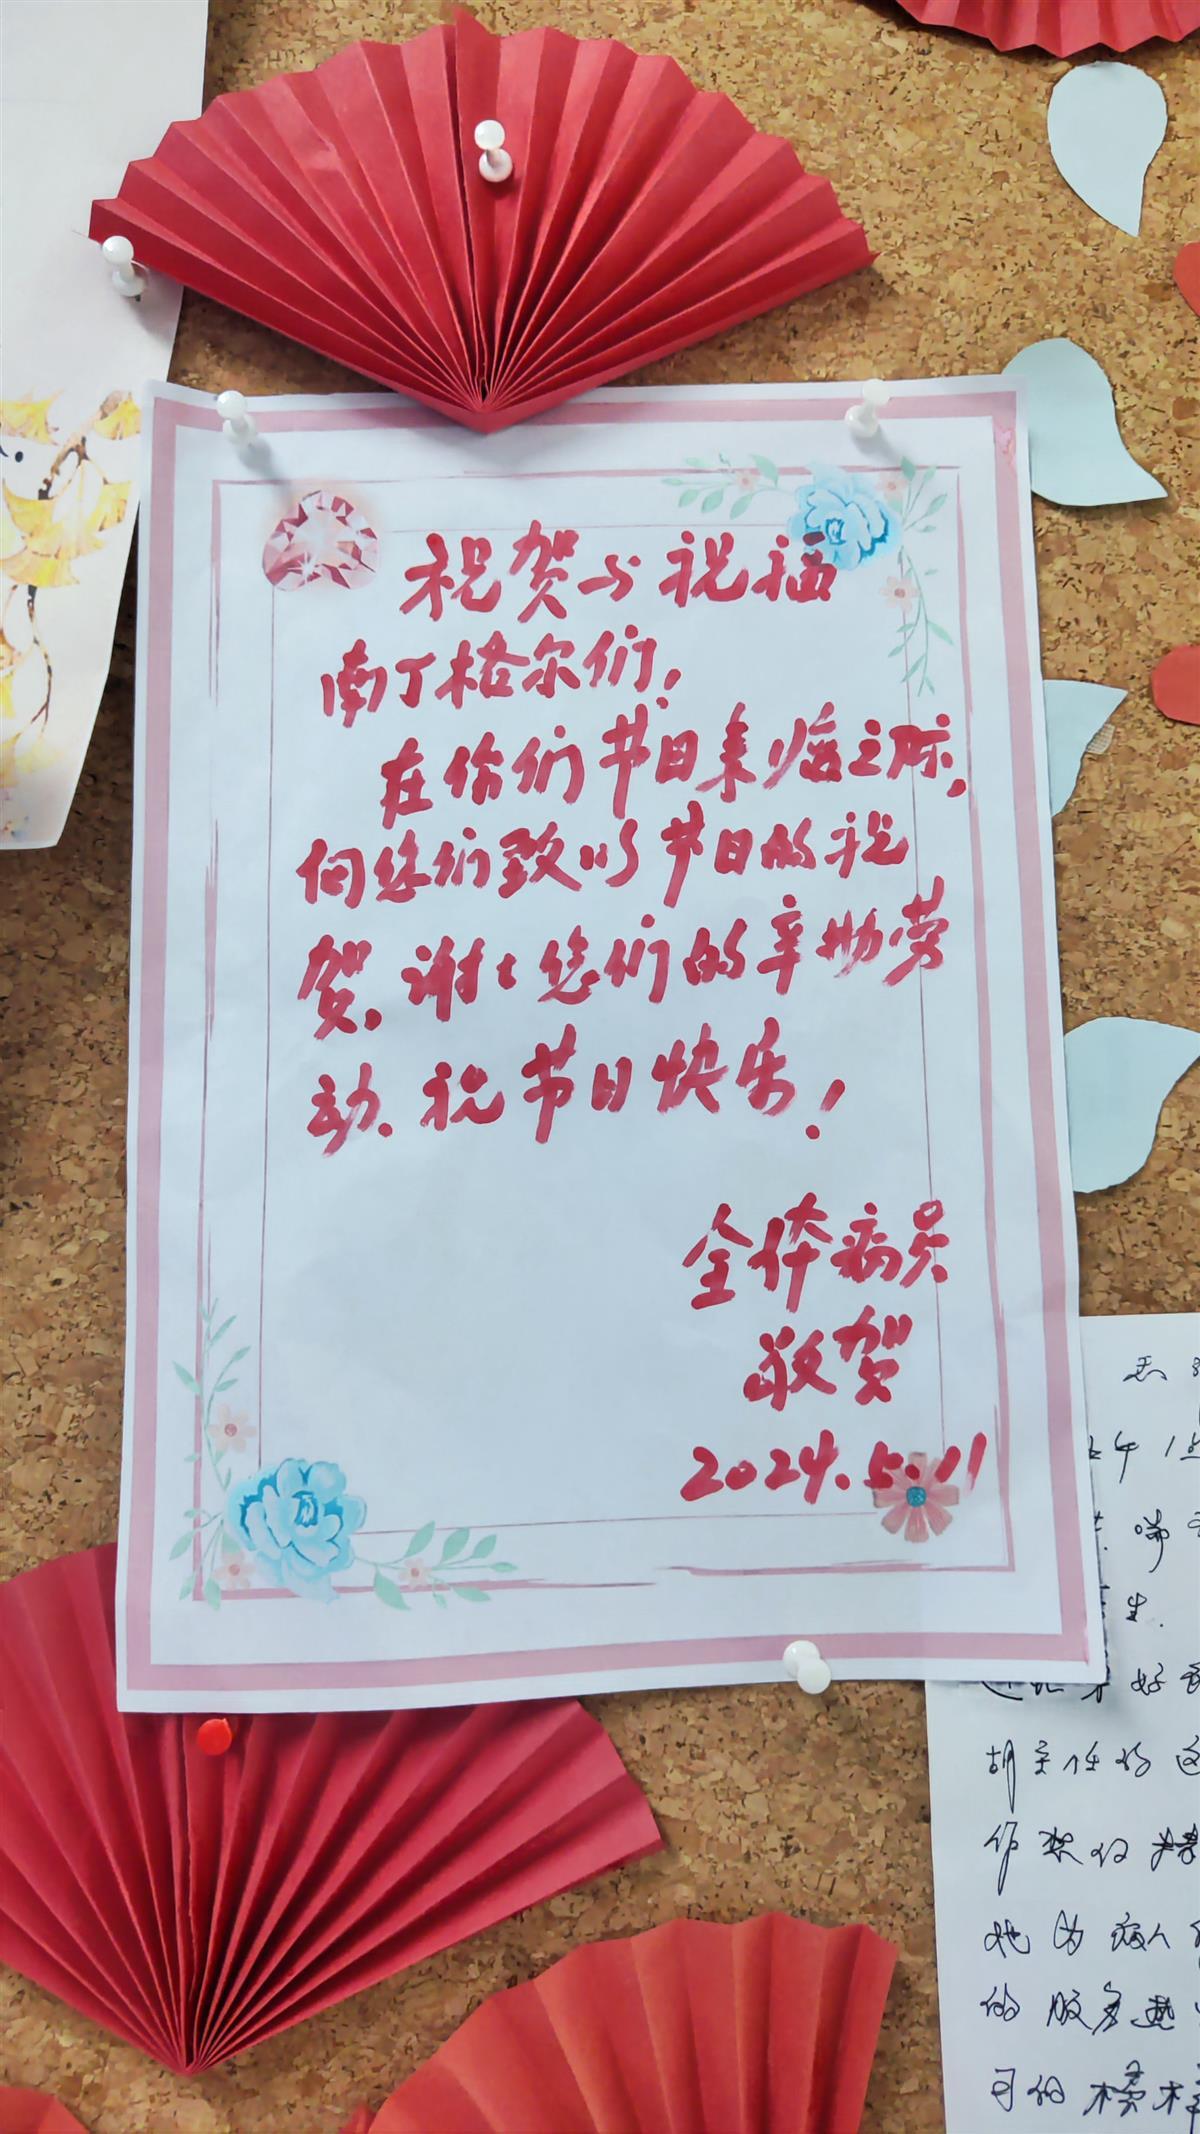 祝贺与祝福
南丁格尔们！
在你们节日来临之际，
向您们致以节日的祝
贺、谢谢您们的辛勤劳
动、祝节日快乐！
全体病员
敬贺
2024.5.11
生.
好
胡主任的这
作想们
他为病人
的服务
可们榜样